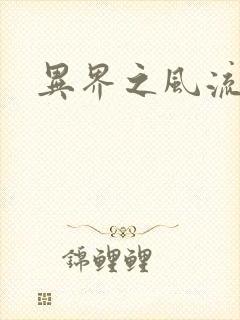 異界之風流
錦鯉鯉